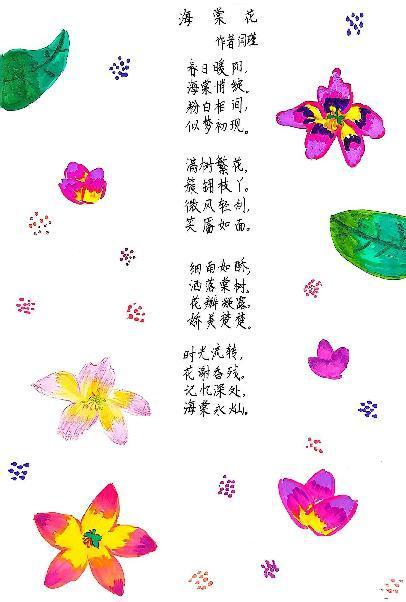 海棠花
作者闫瑾
春日暖阳,
海棠悄绽。
粉白相间,
似梦初现。
满树繁花,
簇拥枝丫。
微风轻刮,
笑靥如画。
细雨如酥,
洒落棠树,
花瓣凝露,
娇美楚楚。
时光流转,
花谢香残。
记忆深处,
海棠永灿。